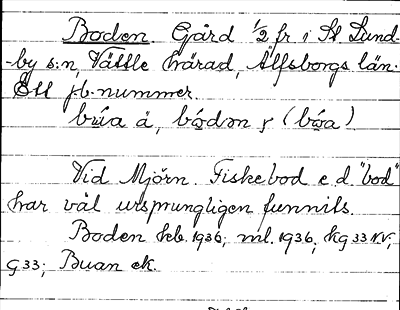 Boden. Gård 1/2 fr i St Lund-
-by s:n, Vättle härad, Älfsborgs län.
Ett jb.-nummer.
bu̱a å, bo̱dən ɤ (bo̱a)
Vid Mjörn. Fiskebod e d "bod"
har väl ursprungligen funnits.
Boden hcb. 1936; ml. 1936, kg 33 NV,
G33; Buan ek.